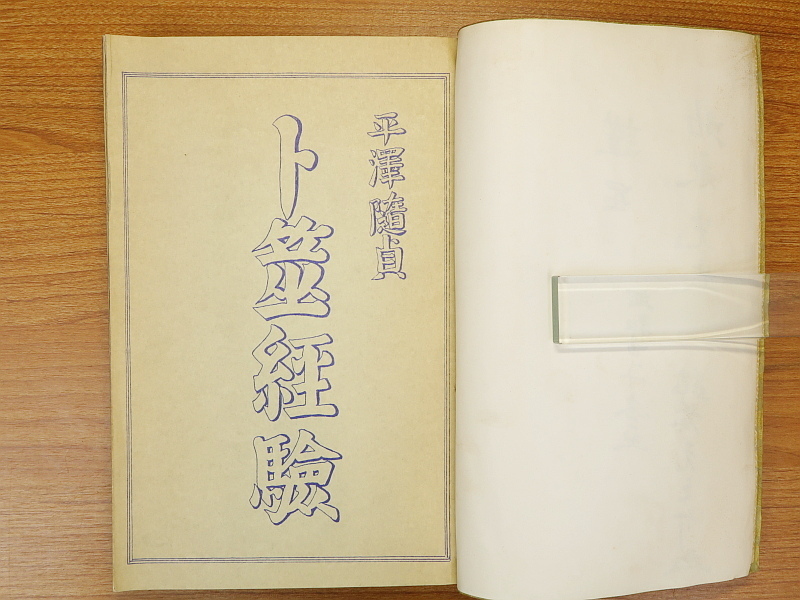 平澤隨貞
卜筮経驗